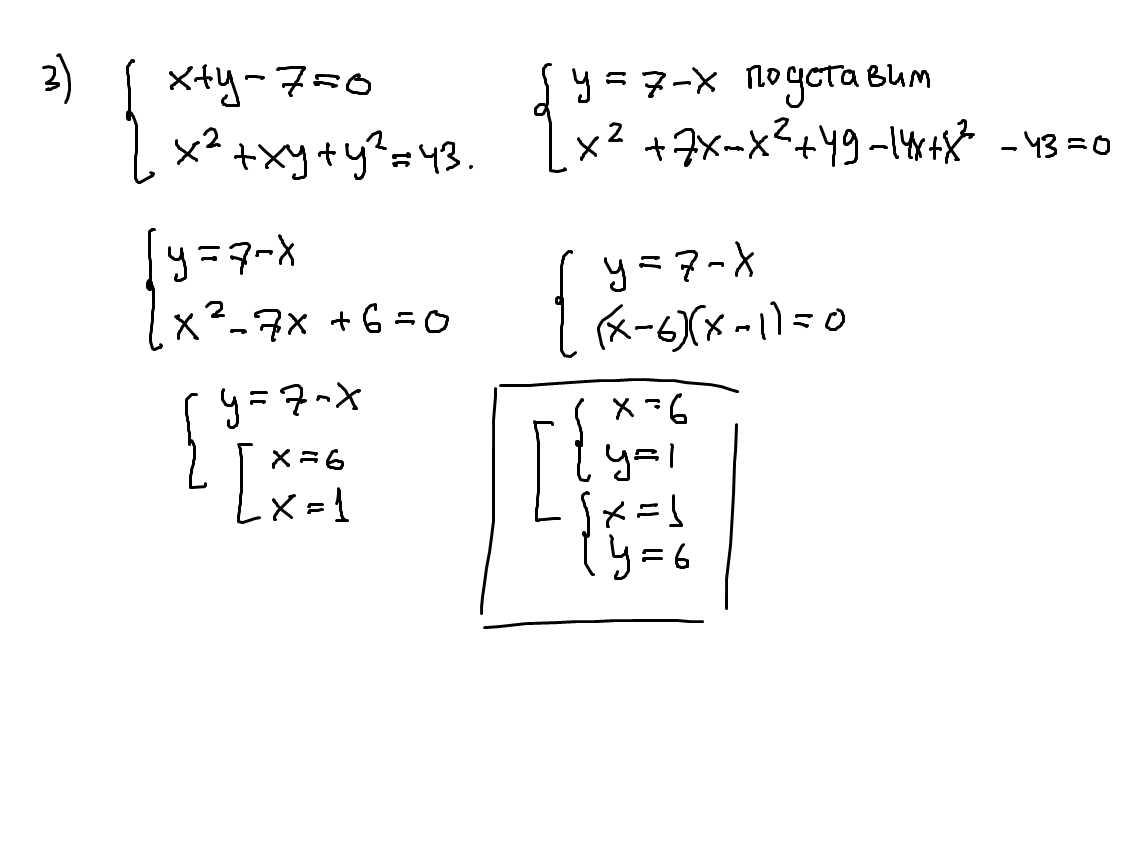 3) { x+y-7=0
x² +xy+y²=43.
{ y = 7-x подставим
x² +7x-x²+49-14x+x² -43=0
{ y=7-x
x²-7x +6=0
{ y = 7-x
(x-6)(x-1)=0
{ y=7-x
[ x=6
x=1
[ { x=6
y=1
{ x=1
y=6